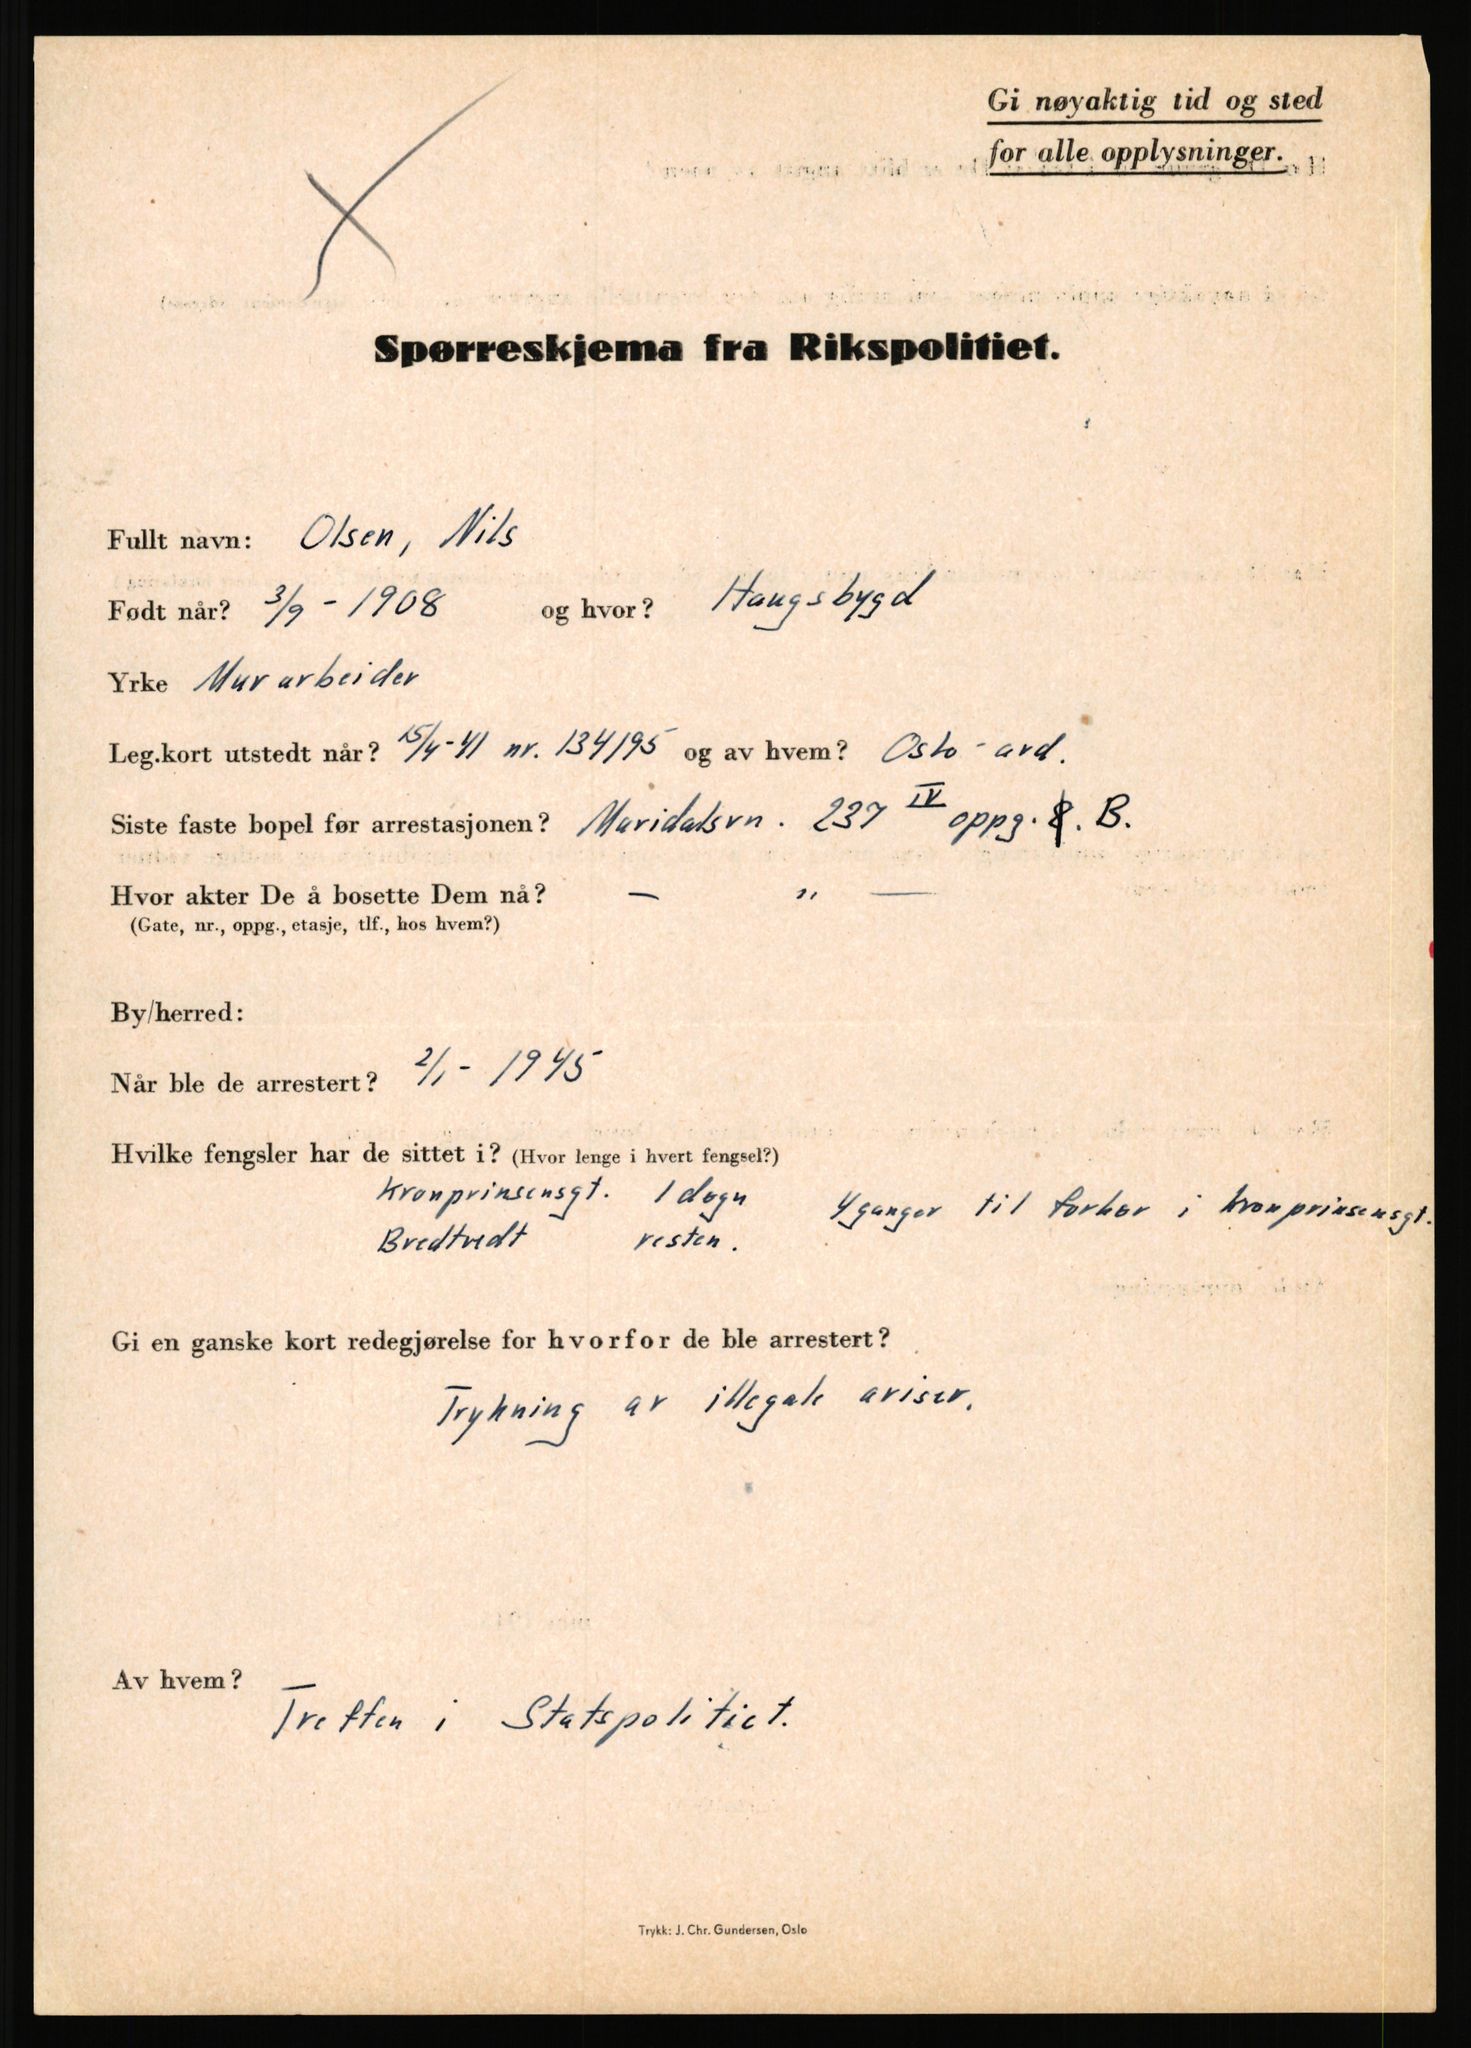 Gi nøyaktig tid og sted
for alle opplysninger.
Spørreskjema fra Rikspolitiet.
Fullt navn: Olsen, Nils
Født når? 3/9 - 1908 og hvor? Haugsbygd
Yrke Murarbeider
Leg.kort utstedt når? 15/4-41 nr. 134195 og av hvem? Oslo - avd.
Siste faste bopel før arrestasjonen? Maridalsvn. 237 IV oppg. B.
Hvor akter De å bosette Dem nå? — „ —
(Gate, nr., oppg., etasje, tlf., hos hvem?)
By/herred:
Når ble de arrestert? 2/1 - 1945
Hvilke fengsler har de sittet i? (Hvor lenge i hvert fengsel?)
Kronprinsensgt. 1 døgn 4 ganger til forhør i Kronprinsensgt.
Bredtvedt resten.
Gi en ganske kort redegjørelse for hvorfor de ble arrestert?
Trykning av illegale aviser.
Av hvem?
Treffen i Statspolitiet.
Trykk: J. Chr. Gundersen, Oslo